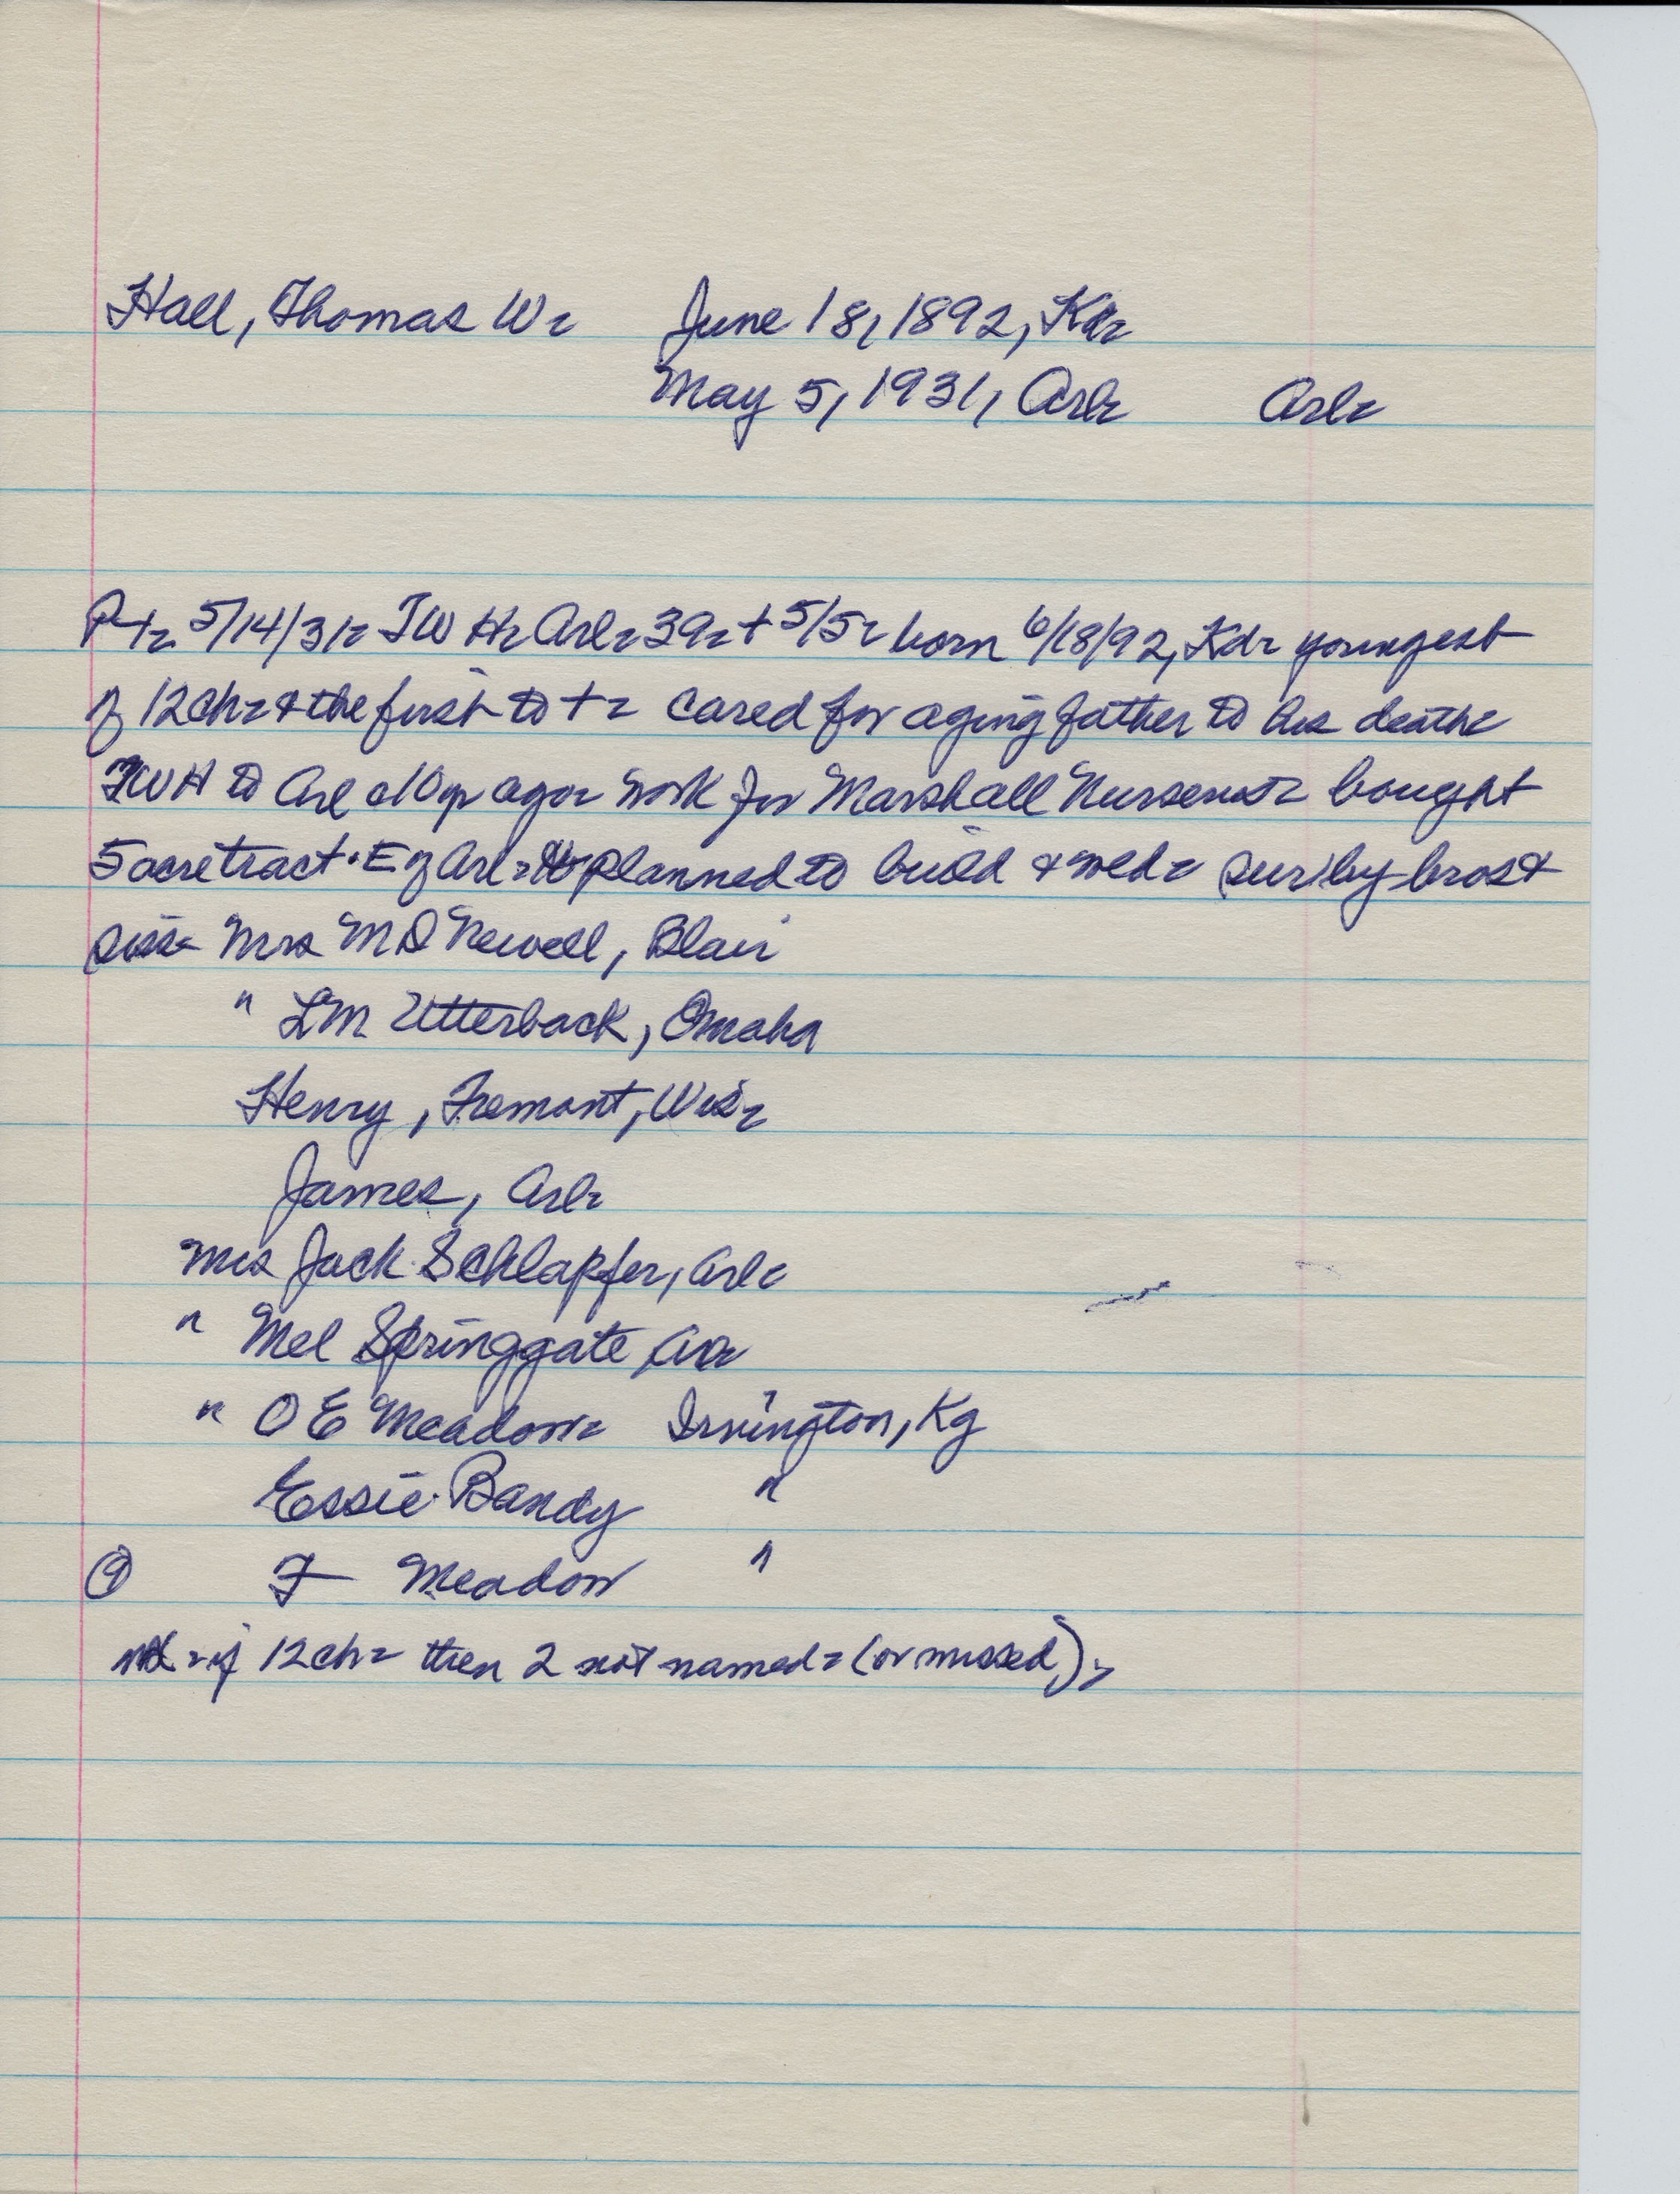 Hall, Thomas W. June 18, 1892, Kd.
May 5, 1931, Arl. Arl.
Pt. 5/14/31. TW H. Arl. 39. + 5/5. born 6/18/92, Kd. youngest
of 12 ch. & the first to +. cared for aging father to his death.
TWH to Arl c10 yr ago. work for Marshall Nurseries. bought
5 acre tract. E of Arl. planned to build & wed. sur/by bros &
sis. Mrs M D Newell, Blair
" LM Utterback, Omaha
Henry, Fremont, Wis.
James, Arl.
Mrs Jack Schlapfer, Arl.
" Mel Springgate,
" O E Meadow. Irvington, Ky
Essie. Bandy "
⑨ F Meadow "
. if 12 ch. then 2 not named. (or missed).